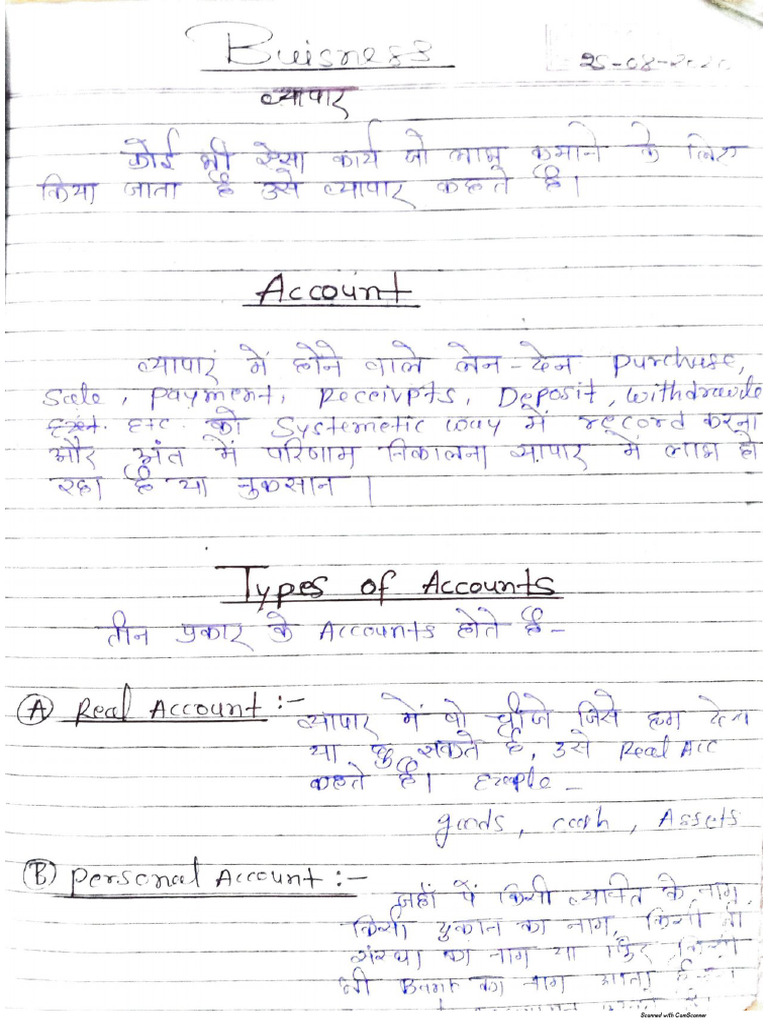 Buisness
25-08-2020
व्यापार
कोई भी ऐसा कार्य जो लाभ कमाने के लिए
किया जाता है उसे व्यापार कहते है।
Account
व्यापार में होने वाले लेन-देन purchase,
Sale, payment, Receivpts, Deposit, withdrawle
Etc. को Systemetic way में record करना
और अंत में परिणाम निकालना व्यापार में लाभ हो
रहा है या नुकसान।
Types of Accounts
तीन प्रकार के Accounts होते है-
(A) Real Account :- व्यापार में वो चीजे जिसे हम देख
या छु सकते है, उसे Real Acc
कहते है। Exaple-
goods, cash, Assets
(B) Personal Account :-
जहाँ पें किसी व्यक्ति के नाम,
किसी दुकान का नाम, किसी
संस्था का नाम या फिर किसी
भी Bank का नाम आता है
Scanned with CamScanner